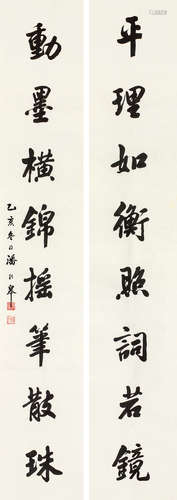 平理如衡照詞若鏡
動墨橫錦搖筆散珠
乙亥春日潘玉皋